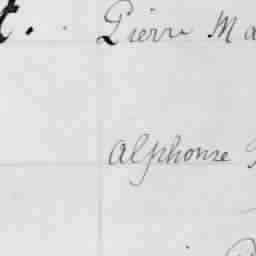 t. Pierre Ma
Alphonse